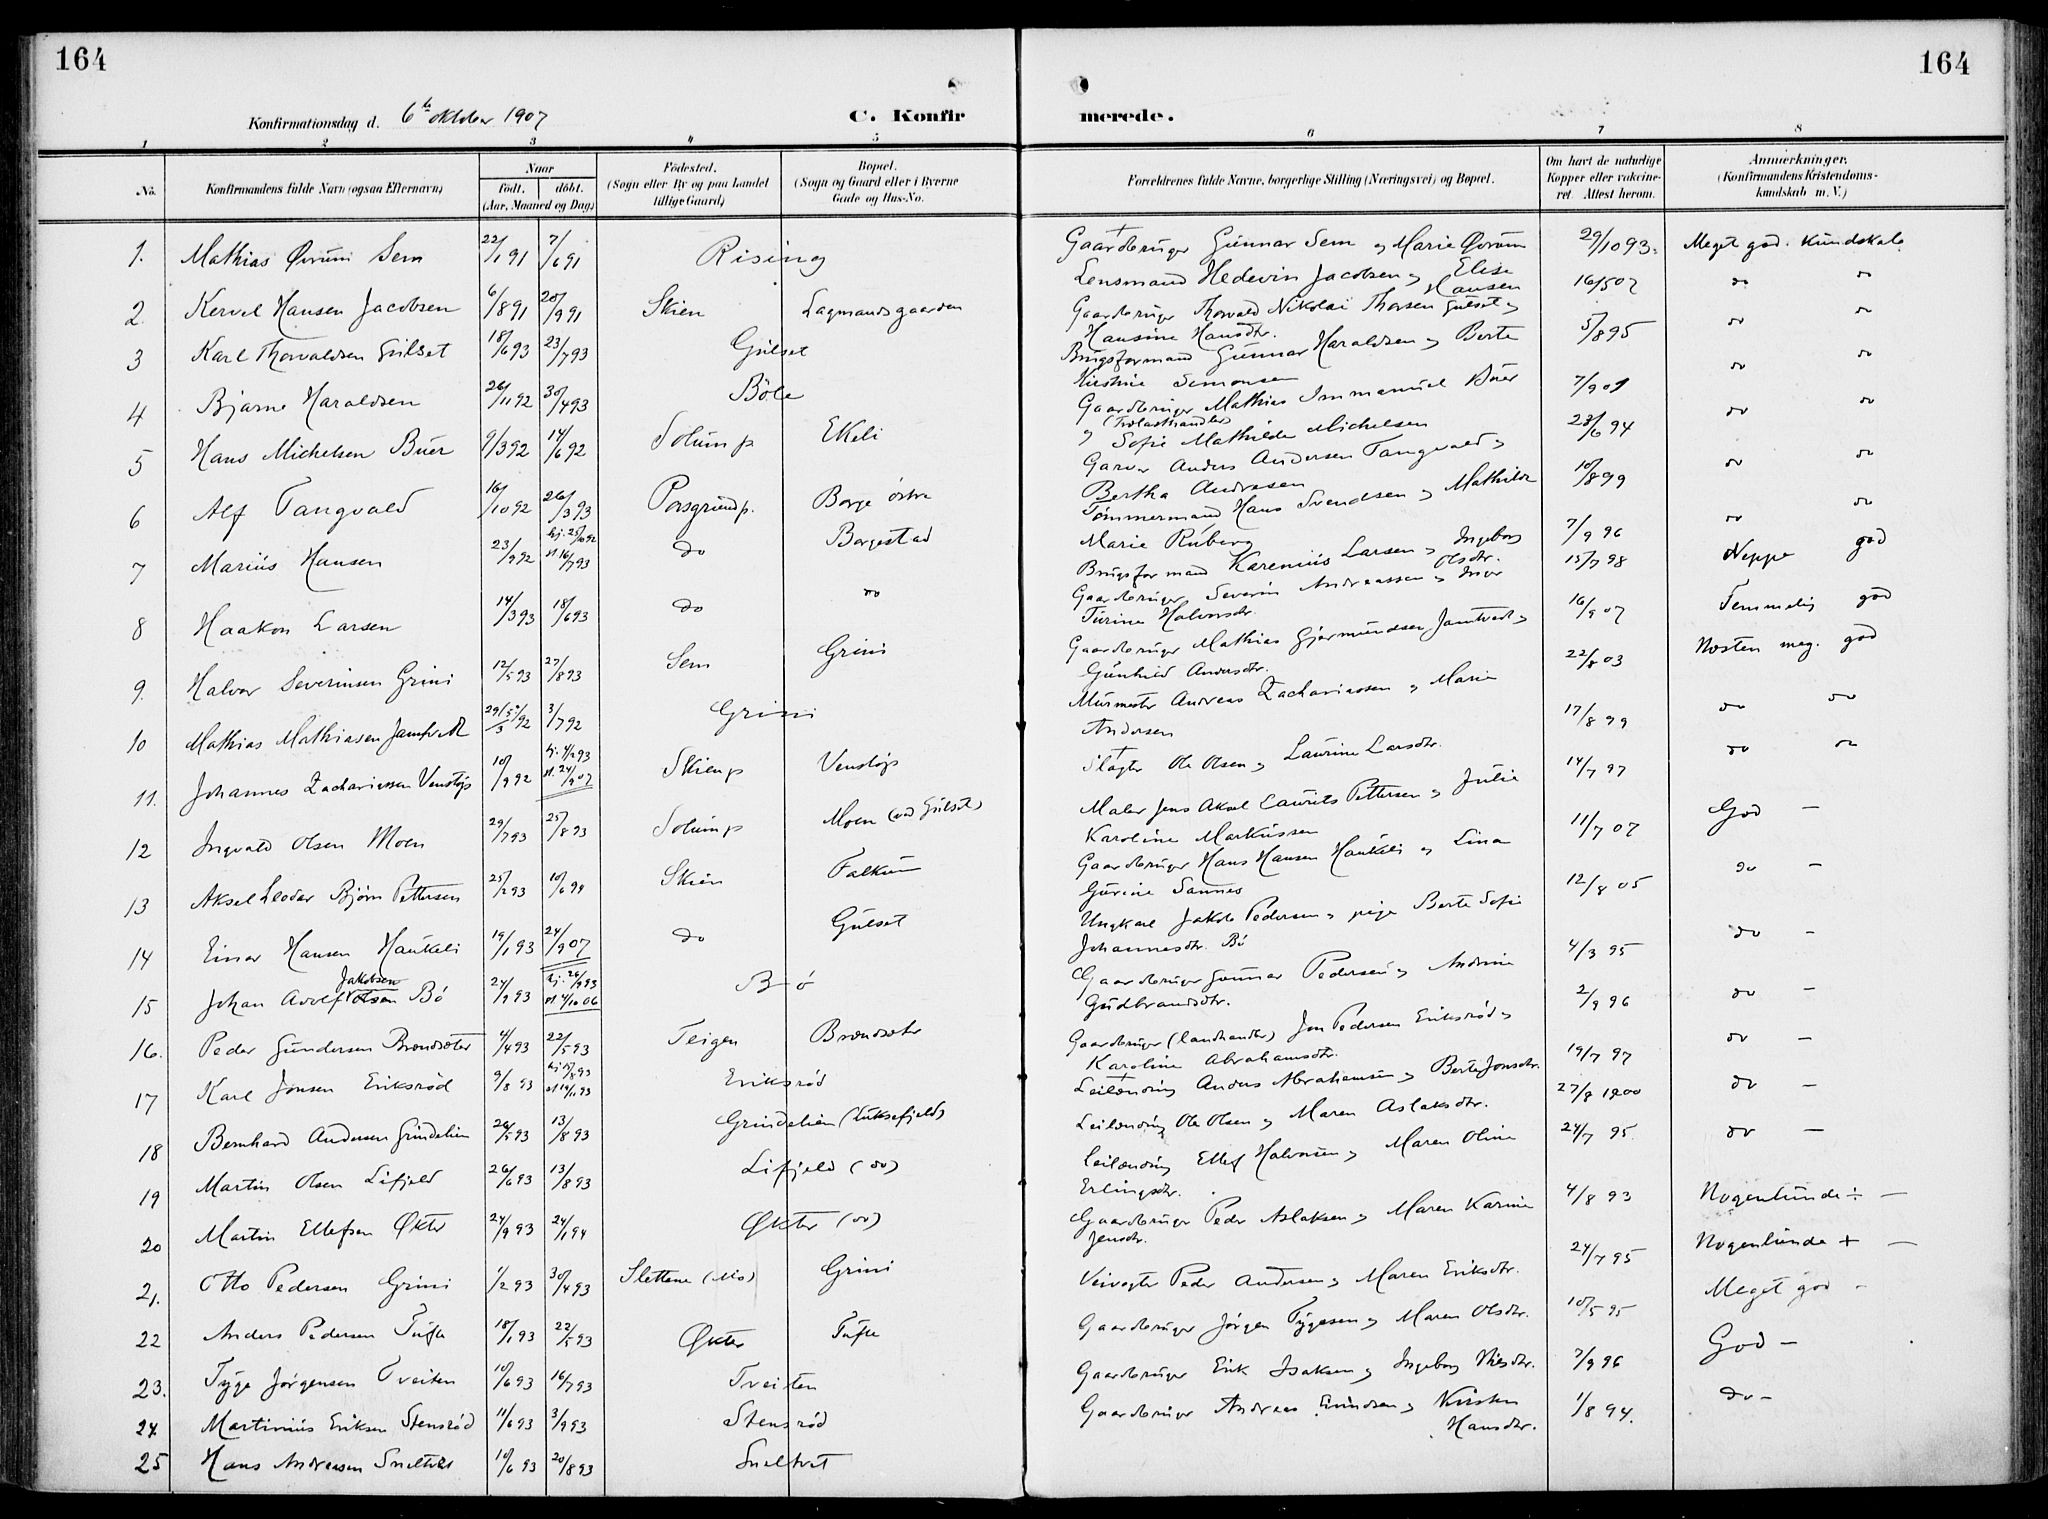 164
164
Konfirmationsdag d. 6te oktober 1907
C. Konfir
merede.
1 2 3 4 5 6 7 8
No. Konfirmandens fulde Navn (ogsaa Efternavn) Naar født. døbt. (Aar, Maaned og Dag) Födested. (Sogn eller By og paa Landet tillige Gaard) Bopæl. (Sogn og Gaard eller i Byerne Gade og Hus-No. Forældrenes fulde Navne, borgerlige Stilling (Næringsvei) og Bopæl. Om havt de naturlige Kopper eller vakcineret. Attest herom. Anmærkninger. (Konfirmandens Kristendomskundskab m. V.)
1. Mathias Øvrum Sem 22/1 91 7/6 91 Rising Gaardbruger Gunnar Sem og Marie Øvrum 29/10 93. Meget god. Kundskab
2. Kervel Hansen Jacobsen 6/8 91 20/9 91 Skien Lagmandsgaarden Lensmand Hedevin Jacobsen og Elise Hansen 16/5 07 do do
3 Karl Thorvaldsen Gulset 18/6 93 23/7 93 Gulset Gaardbruger Thorvald Nikolai Thorsen Gulset og Hansine Hansdtr. 5/8 95 do do
4 Bjarne Haraldsen 26/11 92 30/4 93 Böle Brugsformand Gunnar Haraldsen og Berte Kirstine Simonsen 7/9 01 do do
5 Hans Michelsen Buer 9/3 92 14/6 92 Solum p Ekeli Gaardbruger (Trælasthandler) Mathias Immanuel Buer og Sofie Mathilde Michelsen 23/6 94 do do
6 Alf Tangvald 16/10 92 26/3 93 Porsgrund p. Borge östre Garver Anders Andersen Tangvald og Bertha Andresen 10/8 99 do do
7 Marius Hansen 23/9 92 hj. 25/10 92 st. 16/7 93 do Borgestad Tømmermand Hans Svendsen og Mathilde Marie Ruberg 7/9 96 do do
8 Haakon Larsen 14/3 93 18/6 93 do do Brugsformand Karenius Larsen og Ingeborg Olsdtr. 15/7 98 Neppe god
9. Halvor Severinsen Grini 12/5 93 27/8 93 Sem Grini Gaardbruger Severin Andreassen og Inger Turine Halvorsdtr. 16/9 07 Temmelig god
10 Mathias Mathiasen Jamtvedt 29/5 92 3/7 92 Grini Gaardbruger Mathias Gjermundsen Jamtvedt og Gunhild Andersdtr. 22/8 03 Næsten meg. god
11. Johannes Zachariassen Venstøp 10/9 92 hj. 4/2 93 st. 24/9 07 Skien p Venstøp Murmester Andreas Zachariassen og Marie Andersen 17/8 99 do do
12 Ingvald Olsen Moen 29/7 93 25/8 93 Solum p Moen (ved Gulset) Slagter Ole Olsen og Laurine Larsdtr. 14/7 97 do do
13 Aksel Leodar Bjørn Pettersen 25/2 93 10/6 94 Skien Falkum Maler Jens Aksel Laurits Pettersen og Julie Karoline Markussen 11/7 07 God —
14 Einar Hansen Haukeli 19/1 93 24/9 07 do Gulset Gaardbruger Hans Hansen Haukeli og Lina Gurine Sannes 12/8 05 do —
15 Johan Adolf Jakobsen Olsen Bö 24/9 93 hj. 26/9 93 st 4/10 06 Bö Ungkarl Jakob Pedersen og pige Berte Sofie Johannesdtr. Bö 4/3 95 do —
16. Peder Gundersen Brændsæter 4/4 93 22/5 93 Teigen Brændsæter Gaardbruger Gunnar Pedersen og Andrine Gudbrandsdtr. 2/9 96 do —
17 Karl Jonsen Eriksröd 9/8 93 hj 15/8 93 st 19/11 93 Eriksröd Gaardbruger (Landhandler) Jon Pedersen Eriksröd og Karoline Abrahamsdtr. 19/7 97 do —
18 Bernhard Andersen Grindelien 26/5 93 13/8 93 Grindelien (Luksefjeld) Leilænding Anders Abrahamsen og Berte Jonsdtr. 27/8 1900 do —
19 Martin Olsen Lifjeld 26/6 93 13/8 93 Lifjeld (do) Leilænding Ole Olsen og Maren Aslaksdtr. 24/7 95. do —
20 Martin Ellefsen Økter 24/9 93 24/1 94 Økter (do) Leilænding Ellef Halvorsen og Maren Oline Erlingsdtr. 4/8 93 Nogenlunde ÷ —
21. Otto Pedersen Grini 1/2 93 30/4 93 Slettene (Mo) Grini Gaardbruger Peder Aslaksen og Maren Karine Jensdtr. 24/7 95 Nogenlunde + —
22 Anders Pedersen Tufte 18/1 93 22/5 93 Økter Tufte Veivogter Peder Andersen og Maren Eriksdtr. 10/5 95 Meget god -
23. Tyge Jørgensen Tveiten 10/6 93 16/7 93 Tveiten Gaardbruger Jørgen Tygesen og Maren Olsdtr. 7/9 96 God —
24 Martinius Eriksen Stensröd 11/6 93 3/9 93 Stensröd Gaardbruger Erik Isaksen og Ingeborg Nilsdtr. 1/8 94. do —
25 Hans Andreasen Sneltvedt 10/6 93 20/8 93 Sneltvet Gaardbruger Andreas og Kirsten Hansdtr.